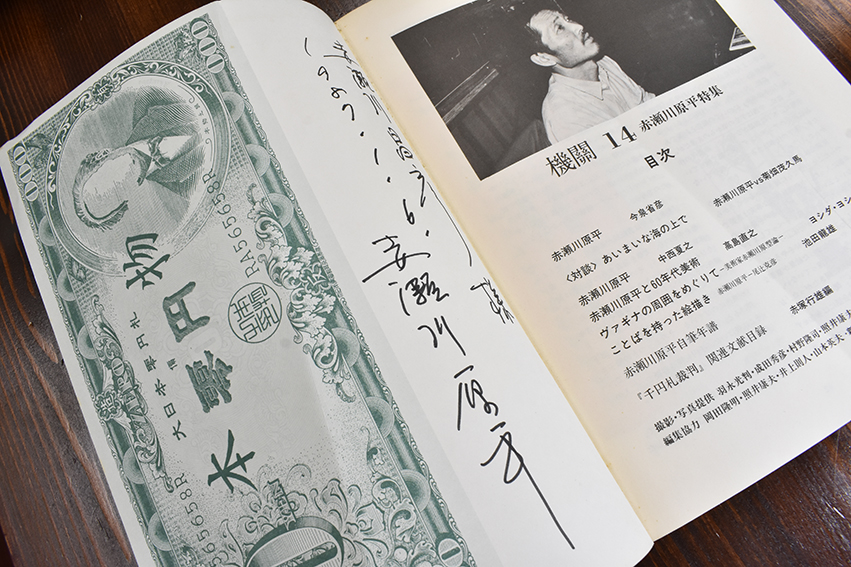 000
RA565658R
大日本零円札
本零円物
RA565658R
000
0
様
赤瀬川原平
機關 14 赤瀬川原平特集
目次
赤瀬川原平 今泉省彦 赤瀬川原平vs菊畑茂久馬
〈対談〉あいまいな海の上で
赤瀬川原平 中西夏之 高島直之 ヨシダ・ヨシ
赤瀬川原平と60年代美術
ヴァギナの周囲をめぐりて―美術家赤瀬川原型論― 池田龍雄
ことばを持った絵描き 赤瀬川原平―尾辻克彦
赤瀬川原平自筆年譜
『千円札裁判』関連文献目録 赤塚行雄編
撮影・写真提供 羽永光利・成田秀彦・村野隆司・照井康夫
編集協力 岡田隆明・照井康夫・井上則人・山本英夫